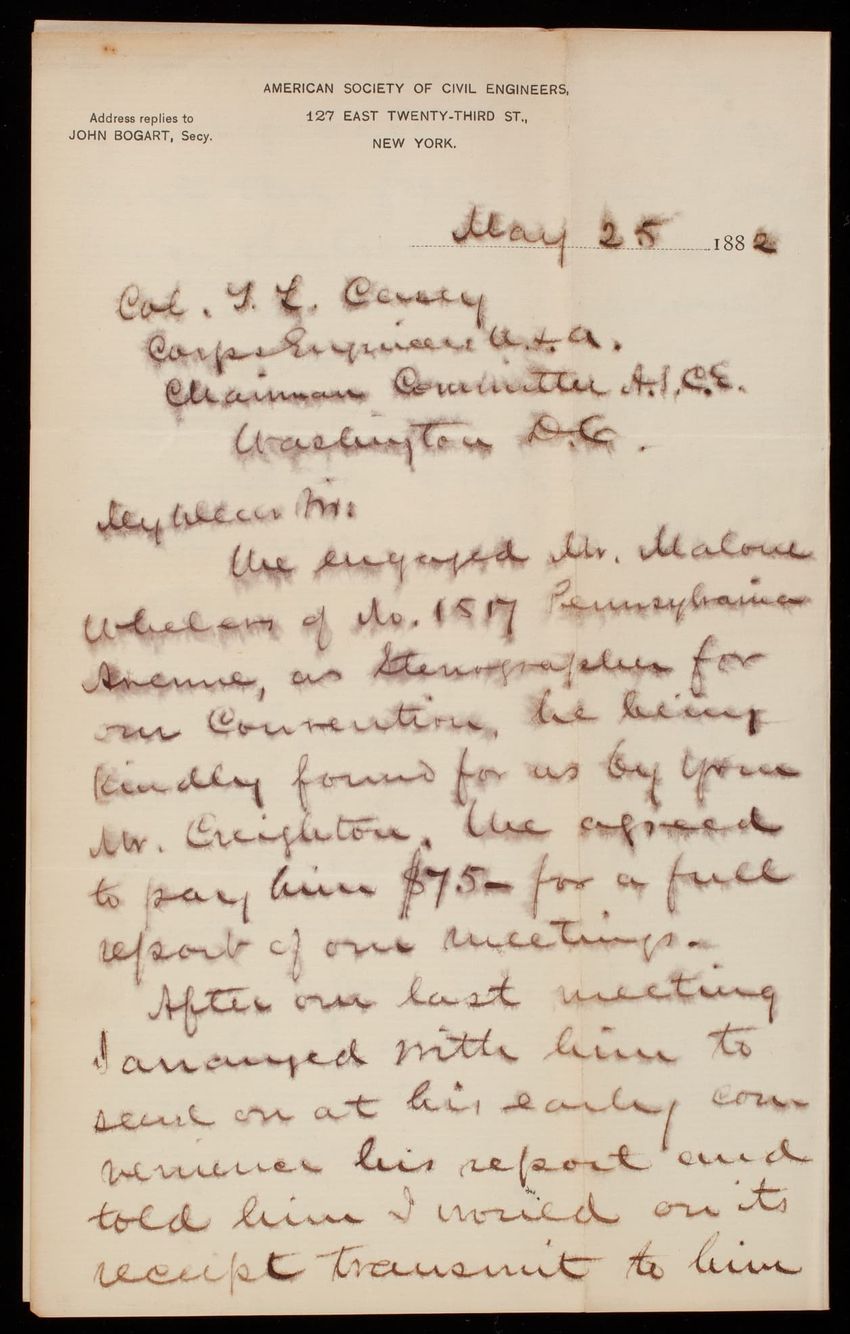 AMERICAN SOCIETY OF CIVIL ENGINEERS,
127 EAST TWENTY-THIRD ST.,
NEW YORK.
Address replies to
JOHN BOGART, Secy.
May 25 1882
Col. T. L. Casey
Corps Engineers U.S.A.
Chairman Committee A.S.C.E.
Washington D.C.
My Dear Sir:
We engaged Mr. Malone
of No. 1517 Pennsylvania
Avenue, as Stenographer for
our Convention, he being
kindly found for us by your
Mr. Creighton. We agreed
to pay him $75- for a full
report of our meetings.
After our last meeting
I arranged with him to
send on at his early con
venience his report and
told him I would on its
receipt transmit to him